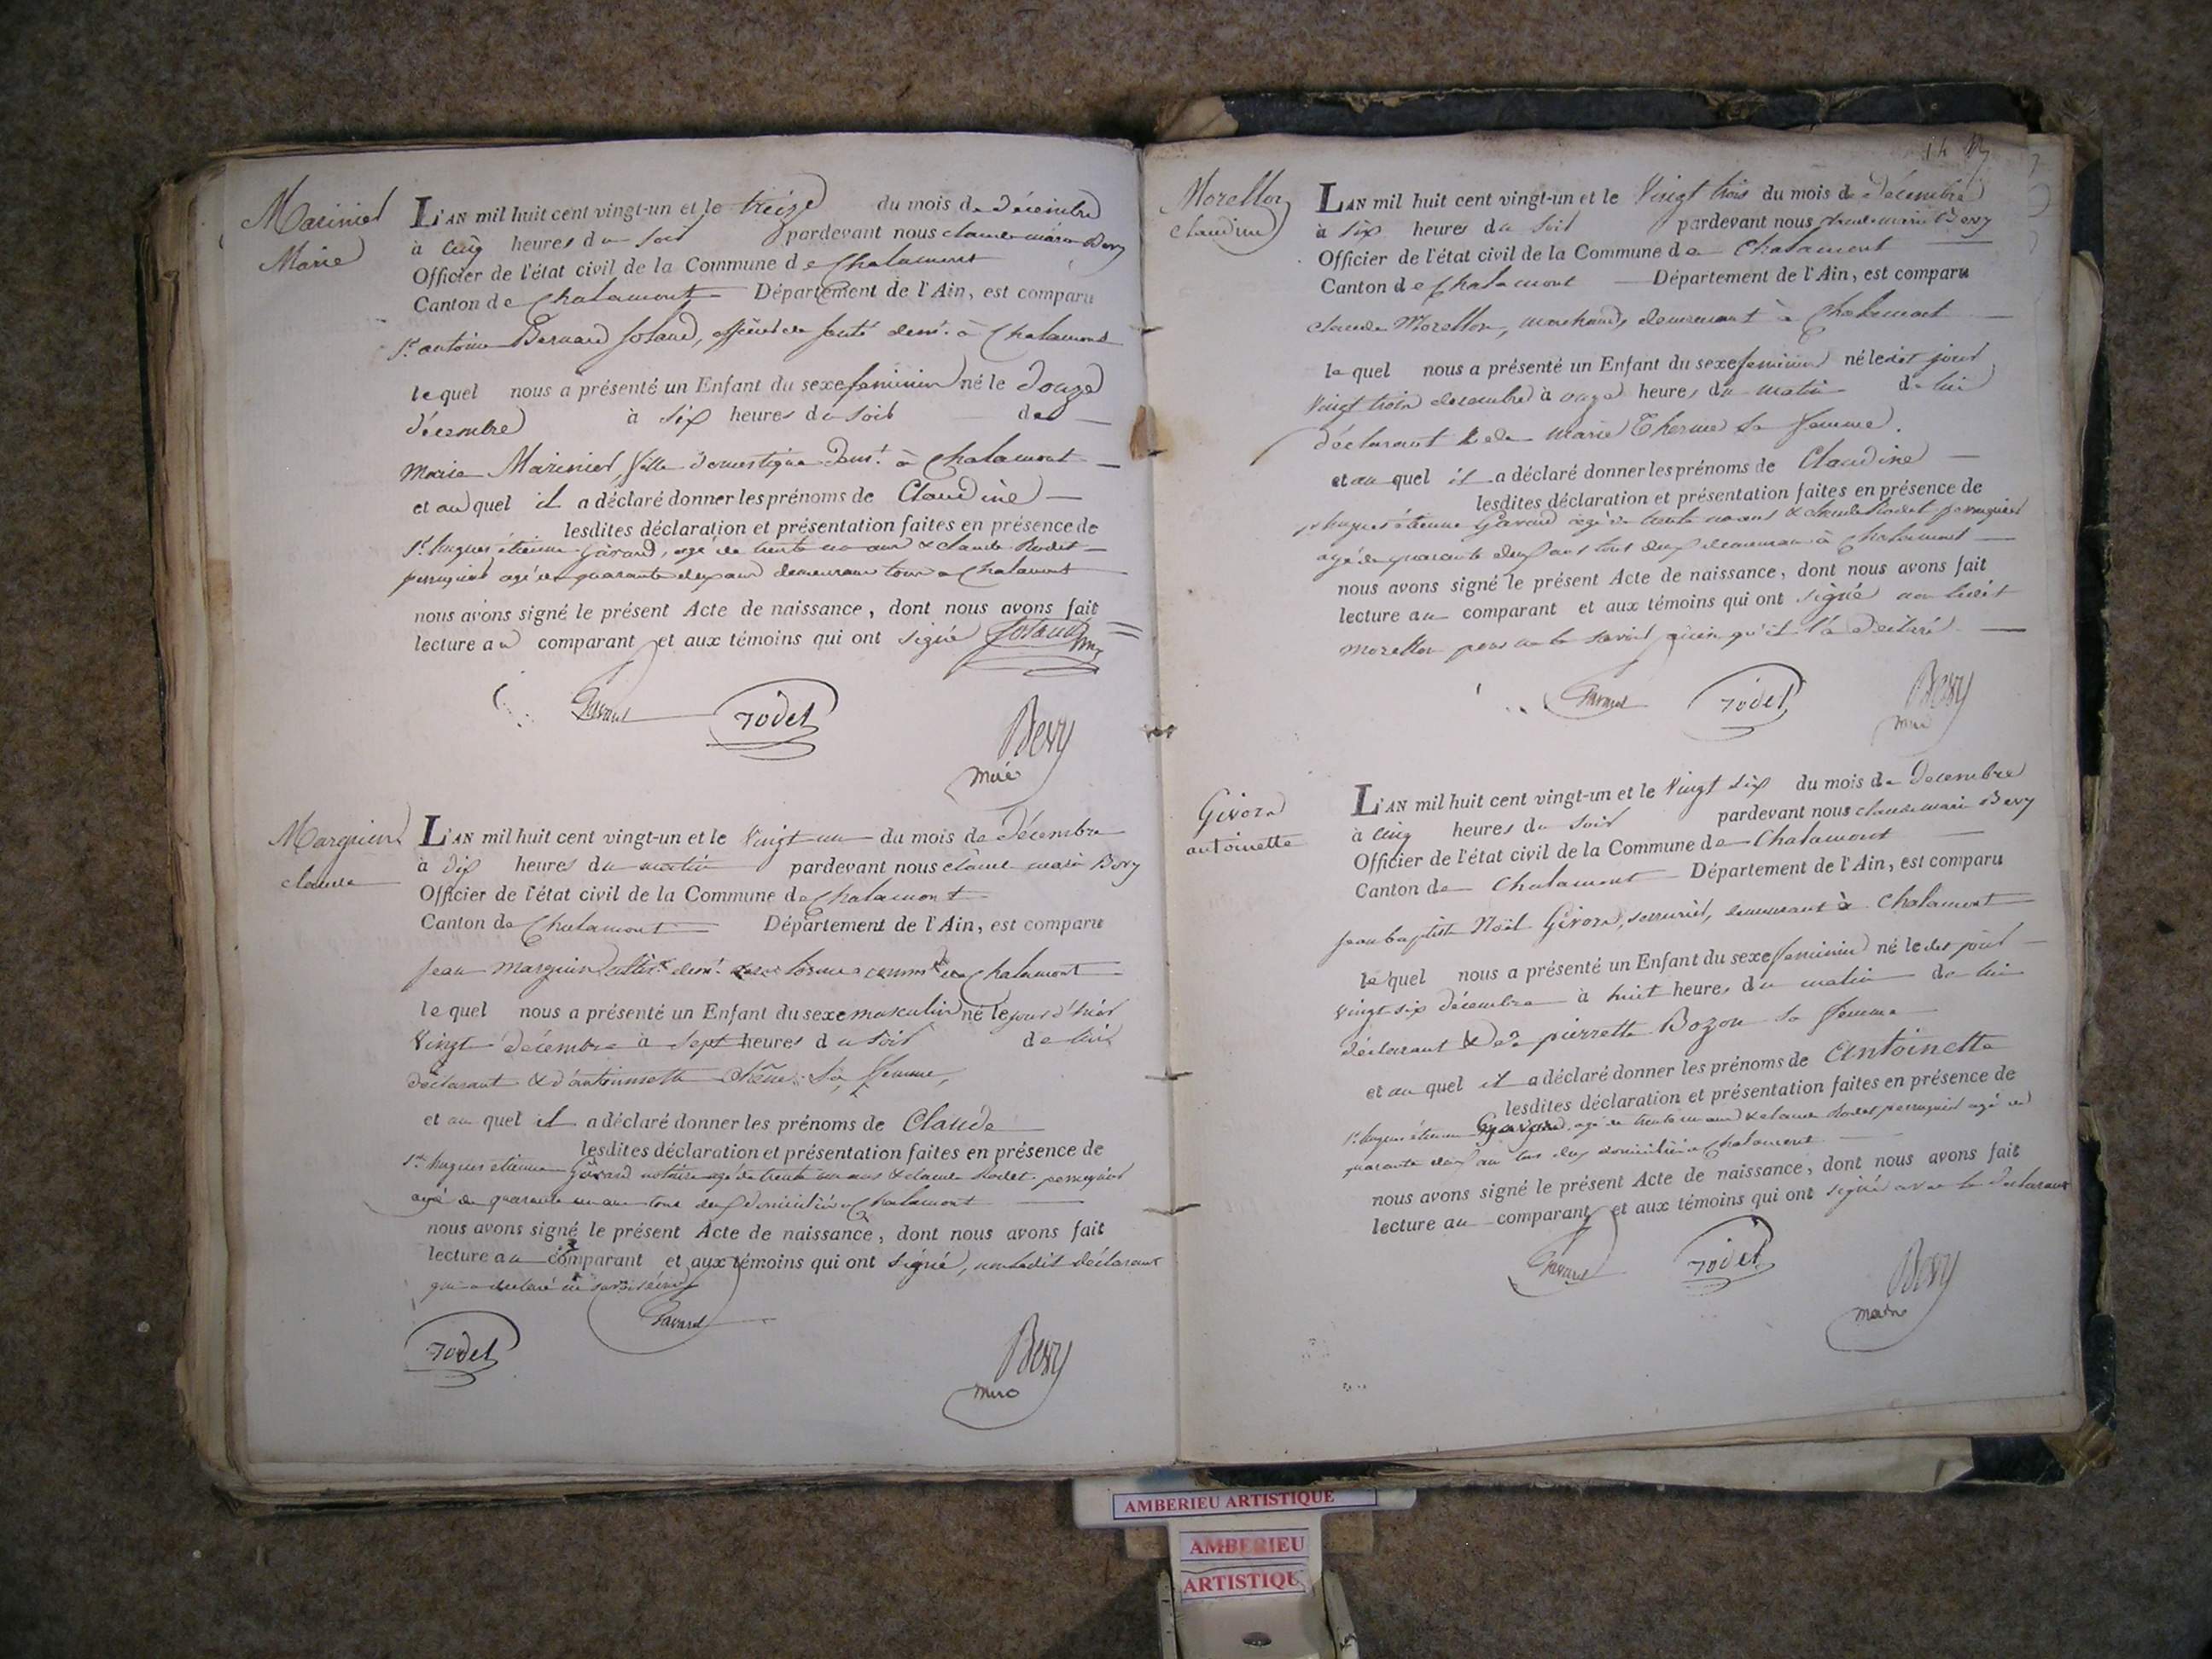 Marinier
Marie
L'AN mil huit cent vingt-un et le treize du mois de décembre
à cinq heures du soir pardevant nous claude marie Bevy
Officier de l'état civil de la Commune de Chalamont
Canton de Chalamont Département de l'Ain, est comparu
Sr antoine Bernard Joland, officier de santé demt. à Chalamont
le quel nous a présenté un Enfant du sexe feminin né le douze
décembre à six heures du soir de
Marie Marinier, fille domestique demt. à Chalamont
et au quel il a déclaré donner les prénoms de Claudine
lesdites déclaration et présentation faites en présence de
Sr. hugues étienne Gavand, agé de trente un ans & claude Rodet
perruquier agé de quarante deux ans demeurans tous a Chalamont
nous avons signé le présent Acte de naissance, dont nous avons fait
lecture au comparant et aux témoins qui ont signé Joland
Gavand rodet
Bevy
Marguin
claude
L'AN mil huit cent vingt-un et le vingt un du mois de décembre
à dix heures du matin pardevant nous claude marie Bevy
Officier de l'état civil de la Commune de Chalamont
Canton de Chalamont Département de l'Ain, est comparu
Jean Marguin demt. de Chalamont
le quel nous a présenté un Enfant du sexe masculin né le jour d'hier
vingt décembre à sept heures du soir de lui
déclarant & d'antoinette sa femme,
et au quel il a déclaré donner les prénoms de Claude
lesdites déclaration et présentation faites en présence de
Sr. hugues étienne Gavand notaire agé de trente un ans & claude Rodet perruquier
agé de quarante un ans tous deux domiciliés a Chalamont
nous avons signé le présent Acte de naissance, dont nous avons fait
lecture au comparant et aux témoins qui ont signé, non ledit déclarant
qui a déclaré ne
Gavand
rodet
Bevy
Morellon
Claudine
L'AN mil huit cent vingt-un et le vingt trois du mois de décembre
à six heures du soir pardevant nous claude marie Bevy
Officier de l'état civil de la Commune de Chalamont
Canton de Chalamont Département de l'Ain, est comparu
claude Morellon, marchand, demeurant à Chalamont
le quel nous a présenté un Enfant du sexe feminin né ledit jour
vingt trois decembre à onze heures du matin de lui
déclarant & de marie Therme sa femme.
et au quel il a déclaré donner les prénoms de Claudine
lesdites déclaration et présentation faites en présence de
Sr hugues étienne Gavand agé de trente un ans & claude Rodet perruquier
agé de quarante deux ans tous deux demeurans à Chalamont
nous avons signé le présent Acte de naissance, dont nous avons fait
lecture au comparant et aux témoins qui ont signé non ledit
morellon pour ne le savoir qu'il l'a déclaré
Gavand rodet Bevy
Givora
antoinette
L'AN mil huit cent vingt-un et le vingt six du mois de decembre
à cinq heures du soir pardevant nous claude marie Bevy
Officier de l'état civil de la Commune de Chalamont
Canton de Chalamont Département de l'Ain, est comparu
Jean baptiste Noël Givora, serrurier, demeurant à Chalamont
le quel nous a présenté un Enfant du sexe feminin né ledit jour
vingt six décembre à huit heures du matin de lui
déclarant & de pierrette Bozon sa femme
et au quel il a déclaré donner les prénoms de Antoinette
lesdites déclaration et présentation faites en présence de
Sr. hugues étienne Gavand, agé de trente un ans & claude Rodet perruquier agé de
quarante deux ans tous deux domiciliés a Chalamont
nous avons signé le présent Acte de naissance, dont nous avons fait
lecture au comparant et aux témoins qui ont signé avec le déclarant
Gavand rodet Bevy
AMBERIEU ARTISTIQUE
AMBERIEU
ARTISTIQUE